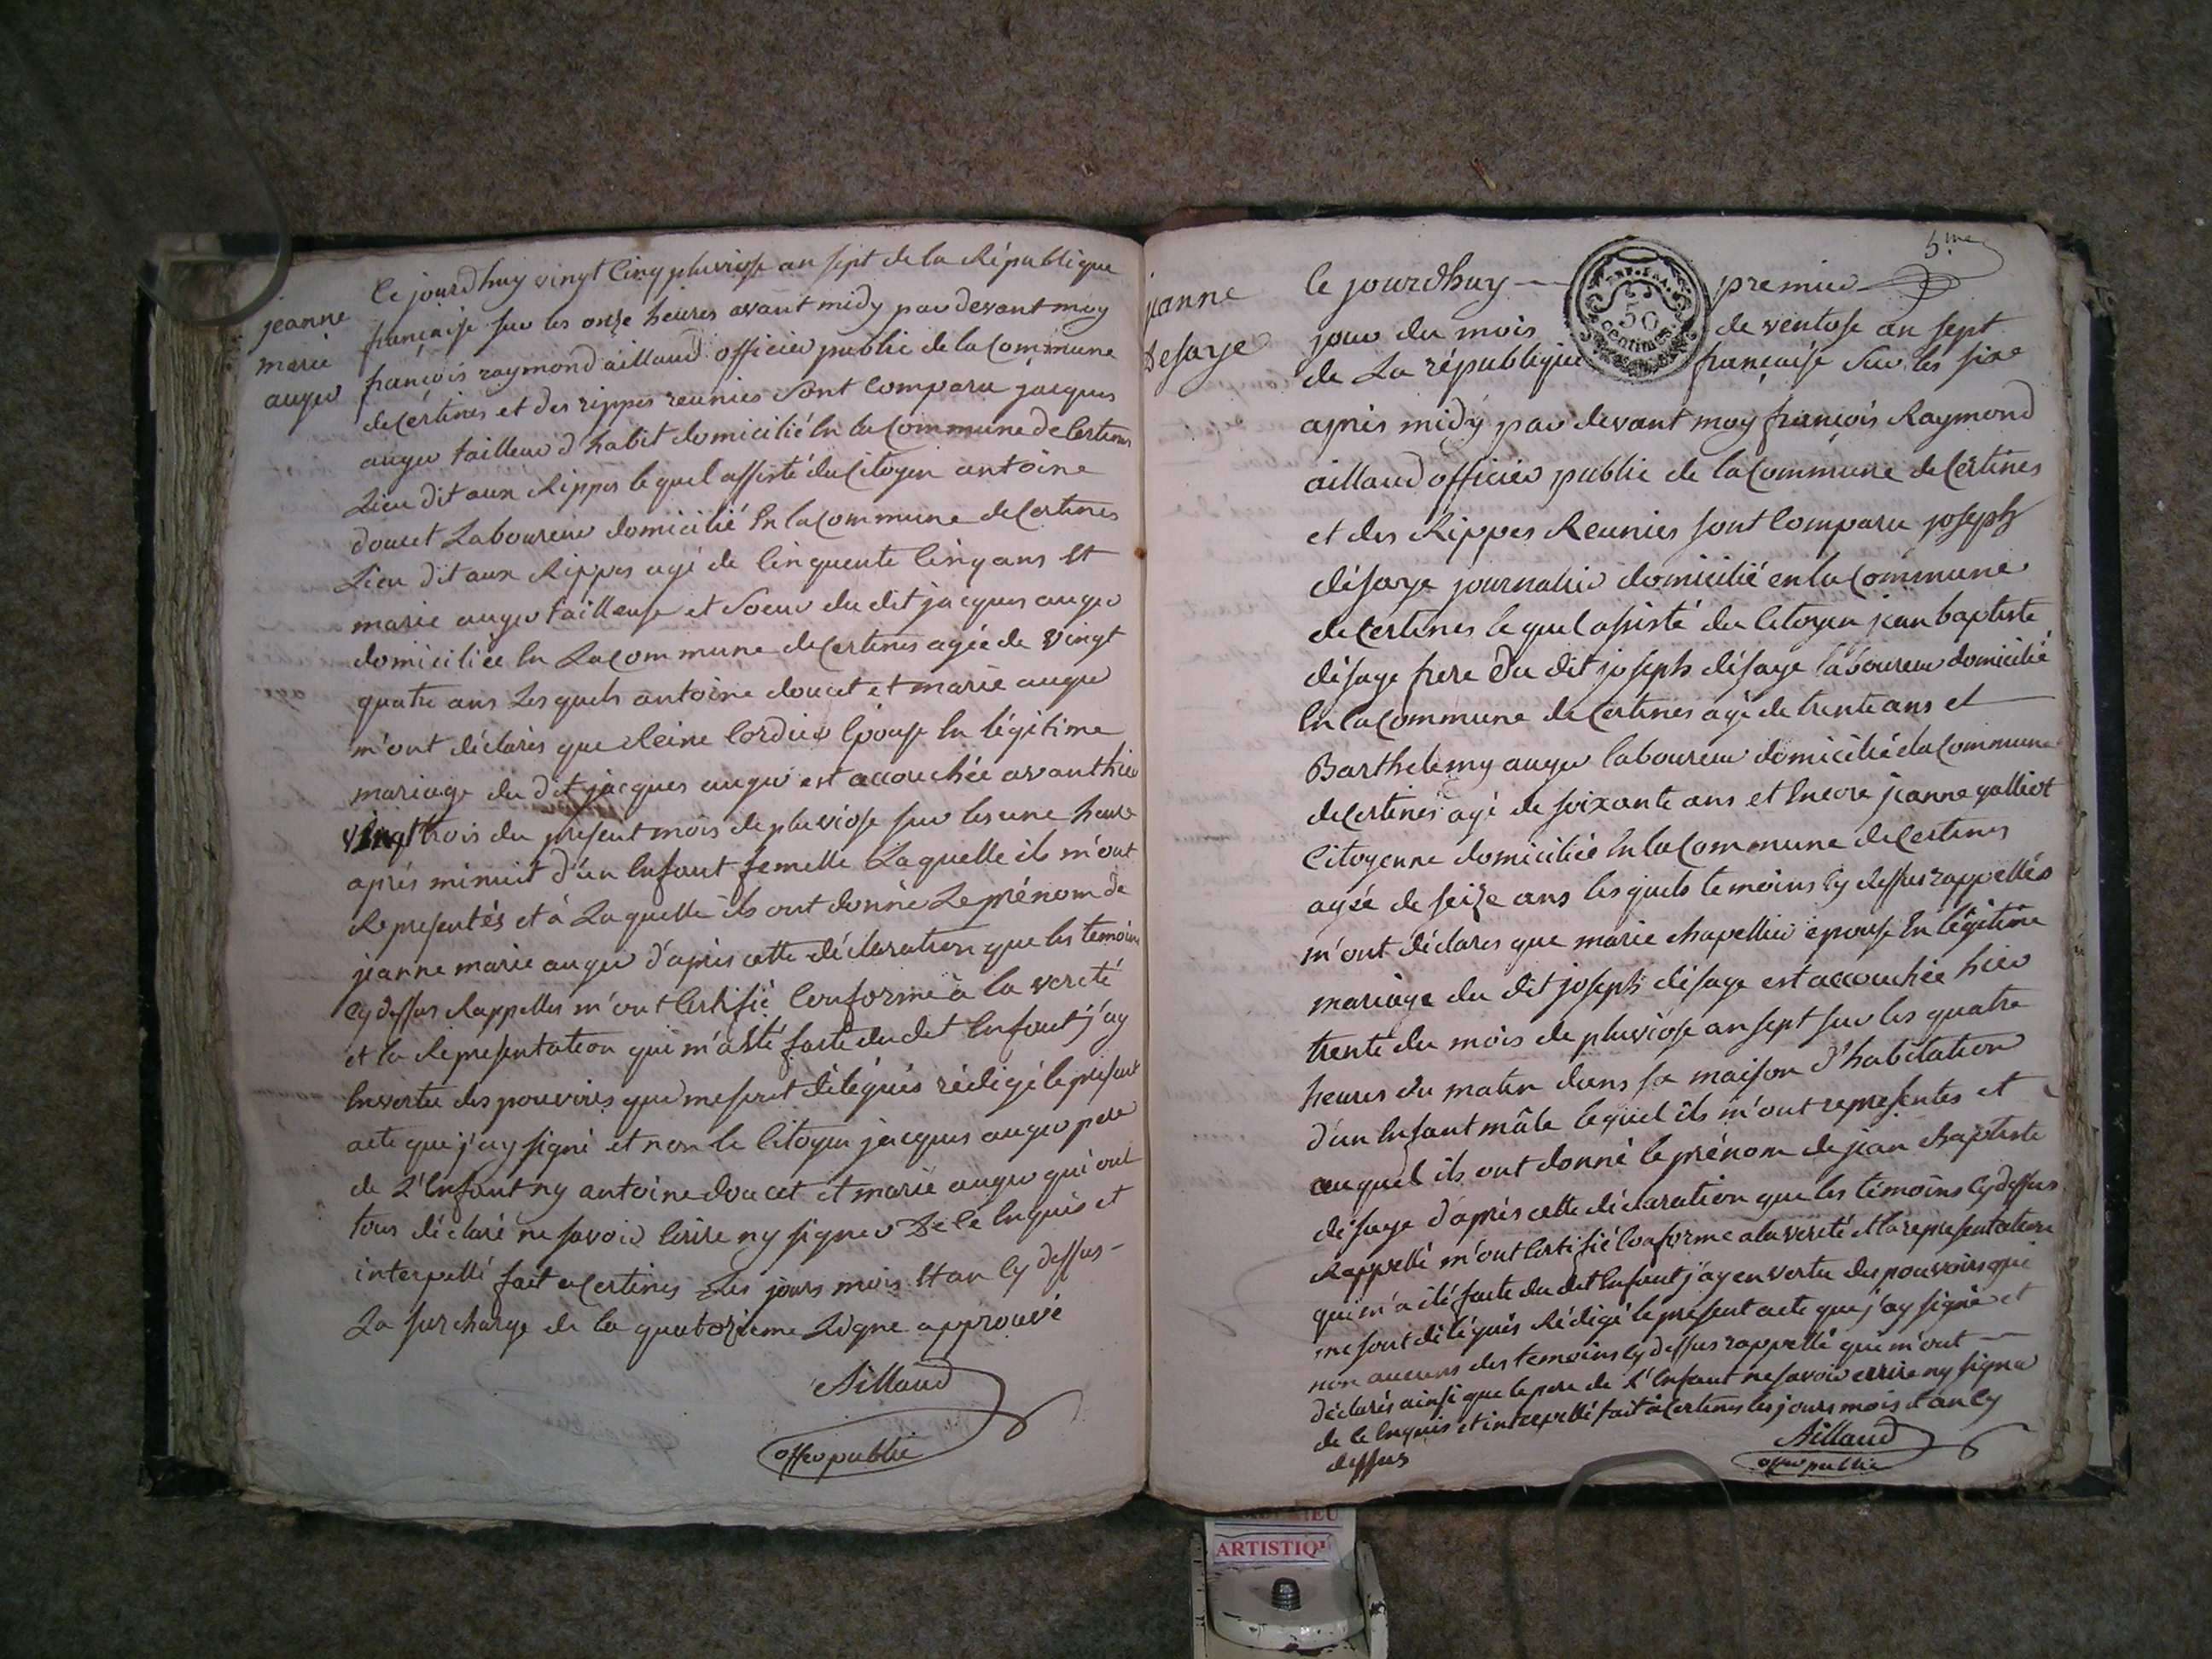 jeanne
marie
auger
Ce jourdhuy vingt cinq pluviose an sept de la République
française sur les onze heures avant midy par devant moy
françois raymond aillaud officier public de la Commune
de Certines et des rippes reunies Sont Comparu jacques
auger tailleur d habit domicilié En la Commune de Certines
Lieu dit aux Rippes le quel assisté du Citoyen antoine
doucet Laboureur domicilié En la Commune de Certines
Lieu dit aux Rippes agé de Cinquente Cinq ans Et
marie auger tailleuse et Soeur du dit jacques auger
domiciliée En La Commune de Certines agée de vingt
quatre ans Les quels antoine doucet et marie auger
m'ont déclarés que Reine Cordier Epouse En légitime
mariage du dit jacques auger est accouchée avant hier
vingt trois du present mois de pluviose sur les une heure
aprés minuit d'un Enfant femelle La quelle ils m'ont
Representés et à La quelle ils ont donné Le prénom de
jeanne marie auger d'après cette déclaration que les témoins
Cy dessus Rappelles m'ont Certifié Conforme à la verité
et la Representation qui m'a Eté faite du dit Enfant j'ay
En vertu des pouvoirs qui me sont délégués rédigé le présent
acte que j'ay signé et non le Citoyen jacques auger pere
de L'Enfant ny antoine doucet et marie auger qui ont
tous déclaré ne savoir Ecrire ny signer De Ce Enquis et
interpellé fait a Certines Les jours mois Et an Cy dessus -
La surcharge de la quatorzième Ligne approuvé
Aillaud
offer public
5.me
jeanne
Desaye
Ce jourdhuy — premier
REP. FRA.
50
centimes
jour du mois de ventose an sept
de La république française Sur les six
aprés midy par devant moy françois Raymond
aillaud officier public de la Commune de Certines
et des Rippes Reunies sont Comparu joseph
désaye journalier domicilié en la Commune
de Certines le quel assisté du Citoyen jean baptiste
désaye frere du dit joseph désaye laboureur domicilié
En la Commune de Certines agé de trente ans et —
Barthelemy auger laboureur domicilié du Commune
de Certines agé de soixante ans et Encore jeanne galliot
Citoyenne domiciliée En la Commune de Certines
agée de seize ans les quels temoins Cy dessus rappellés
m'ont déclares que marie chapellier épouse En légitime
mariage du dit joseph désaye est accouchée hier
trente du mois de pluviose an sept sur les quatre
heures du matin dans sa maison d'habitation
d'un Enfant mâle lequel ils m'ont representes et
auquel ils ont donné le prénom de jean Baptiste
désaye d'après cette déclaration que les témoins Cy dessus
Rappellé m'ont Certifié Conforme a la verité et la representation
qui m'a été faite du dit Enfant j'ay en vertu des pouvoirs qui
me sont délégués Rédigé le present acte que j'ay signé et
non aucuns des temoins Cy dessus rappellé qui m'ont —
déclarés ainsi que le pere de L'Enfant ne savoir ecrire ny signer
de Ce Enquis et interpellé fait à Certines les jours mois et an Cy
dessus
Aillaud
offer public
ARTISTIQ